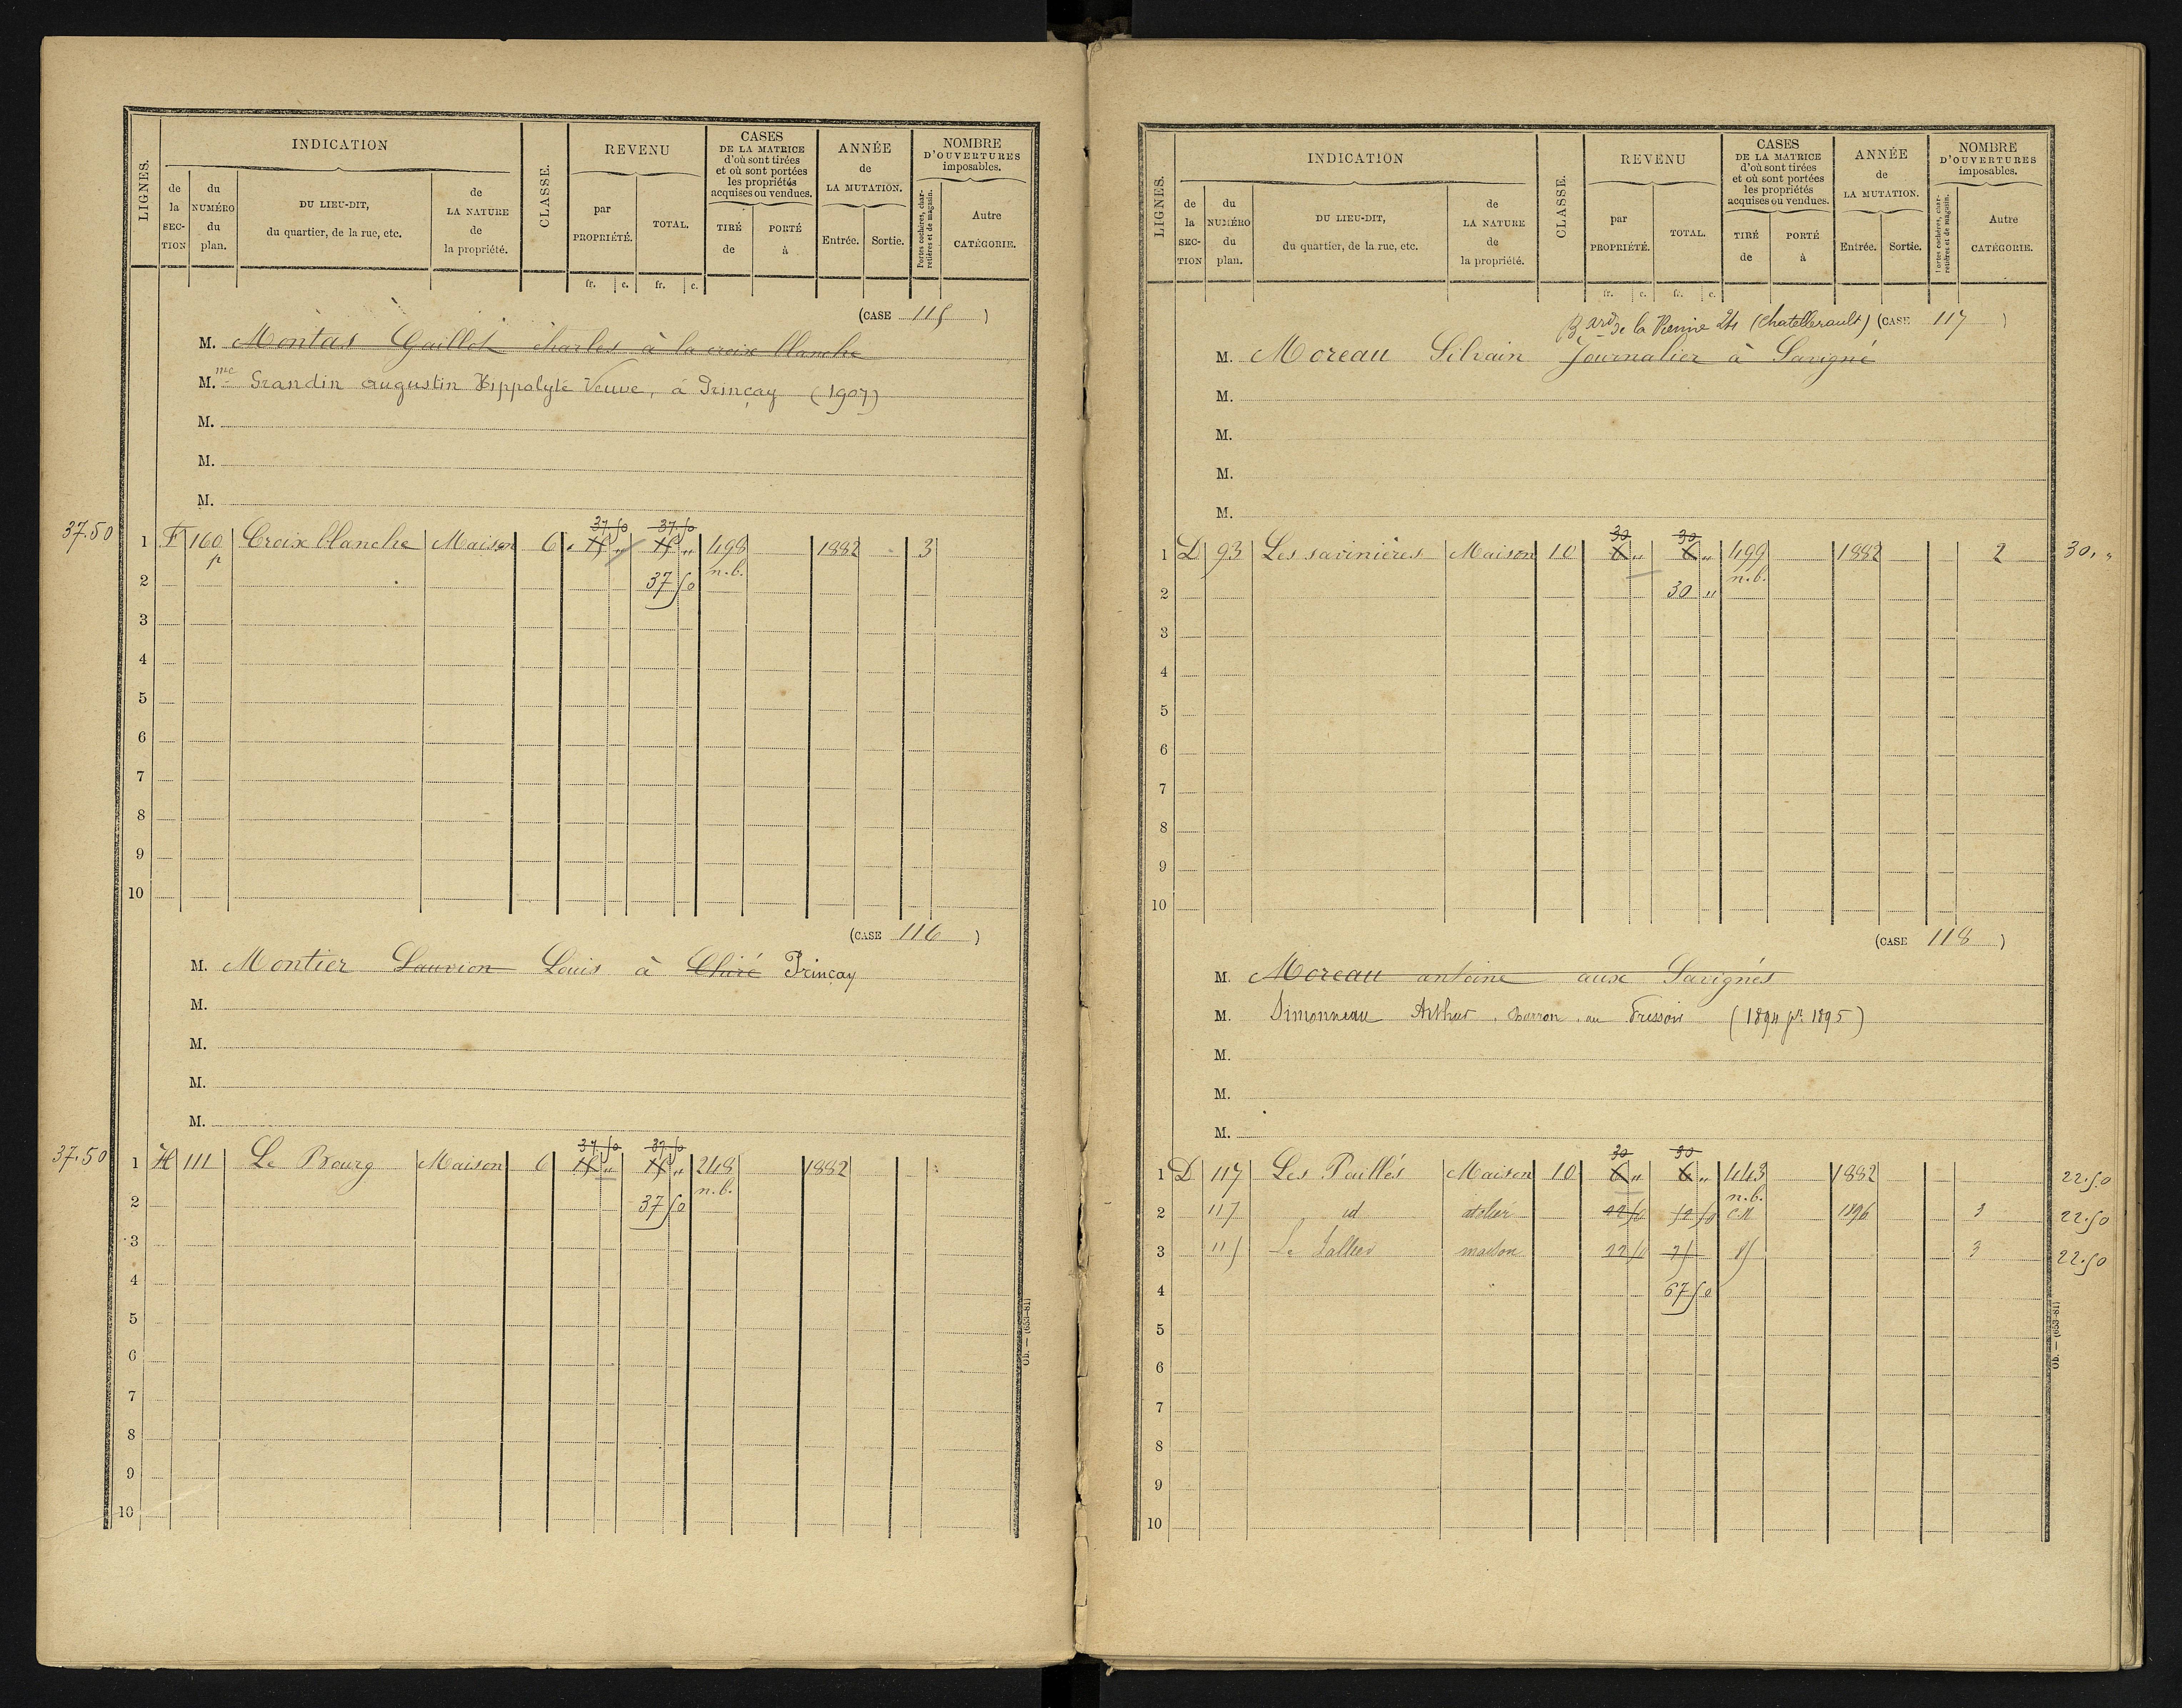 LIGNES.
INDICATION
de la SECTION
du NUMÉRO du plan.
DU LIEU-DIT, du quartier, de la rue, etc.
de LA NATURE de la propriété.
CLASSE.
REVENU
par PROPRIÉTÉ.
TOTAL.
fr. c. fr. c.
CASES DE LA MATRICE d'où sont tirées et où sont portées les propriétés acquises ou vendues.
TIRÉ de
PORTÉ à
ANNÉE de LA MUTATION.
Entrée. Sortie.
NOMBRE D'OUVERTURES imposables.
Portes cochères, charretières et de magasin.
Autre CATÉGORIE.
(CASE 115)
M. Montas Gaillot charles à la croix blanche
M.me Grandin augustin Hippolyte Veuve, à Prinçay (1907)
M.
M.
M.
37.50 37.50
37.50 1 F 160 p Croix blanche Maison 6 15 " 15 " 498 n.b. 1882 3
2 37 50
3
4
5
6
7
8
9
10
(CASE 116)
M. Montier Sauvion Louis à Chiré Prinçay
M.
M.
M.
M.
37.50 37.50
37.50 1 H 111 Le Bourg Maison 6 15 " 15 " 248 n.b. 1882
2 37 50
3
4
5
6
7
8
9
10
Ob. — (653-81)
LIGNES.
INDICATION
de la SECTION
du NUMÉRO du plan.
DU LIEU-DIT, du quartier, de la rue, etc.
de LA NATURE de la propriété.
CLASSE.
REVENU
par PROPRIÉTÉ.
TOTAL.
fr. c. fr. c.
CASES DE LA MATRICE d'où sont tirées et où sont portées les propriétés acquises ou vendues.
TIRÉ de
PORTÉ à
ANNÉE de LA MUTATION.
Entrée. Sortie.
NOMBRE D'OUVERTURES imposables.
Portes cochères, charretières et de magasin.
Autre CATÉGORIE.
Bard de la Vienne (Chatellerault) (CASE 117)
M. Moreau Silvain Journalier à Savigné
M.
M.
M.
M.
30 30
1 D 93 Les savinières Maison 10 6 " 6 " 499 n.b. 1882 2 30. "
2 30 "
3
4
5
6
7
8
9
10
(CASE 118)
M. Moreau antoine aux Savignés
M. Simonneau Arthur, charron, au Pressoir (1894 pr 1895)
M.
M.
M.
30 30
1 D 117 Les Paillés Maison 10 6 " 6 " 443 n.b. 1882 22.50
2 117 id atelier 50 1896 3 22.50
3 115 Le maison 3 22.50
4 67 50
5
6
7
8
9
10
Ob. — (653-81)